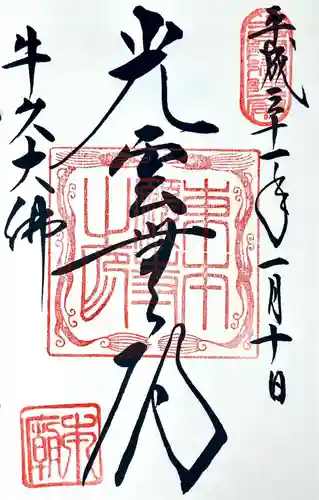 平成三十一年一月十日
光雲無碍
牛久大佛
東本願寺之印